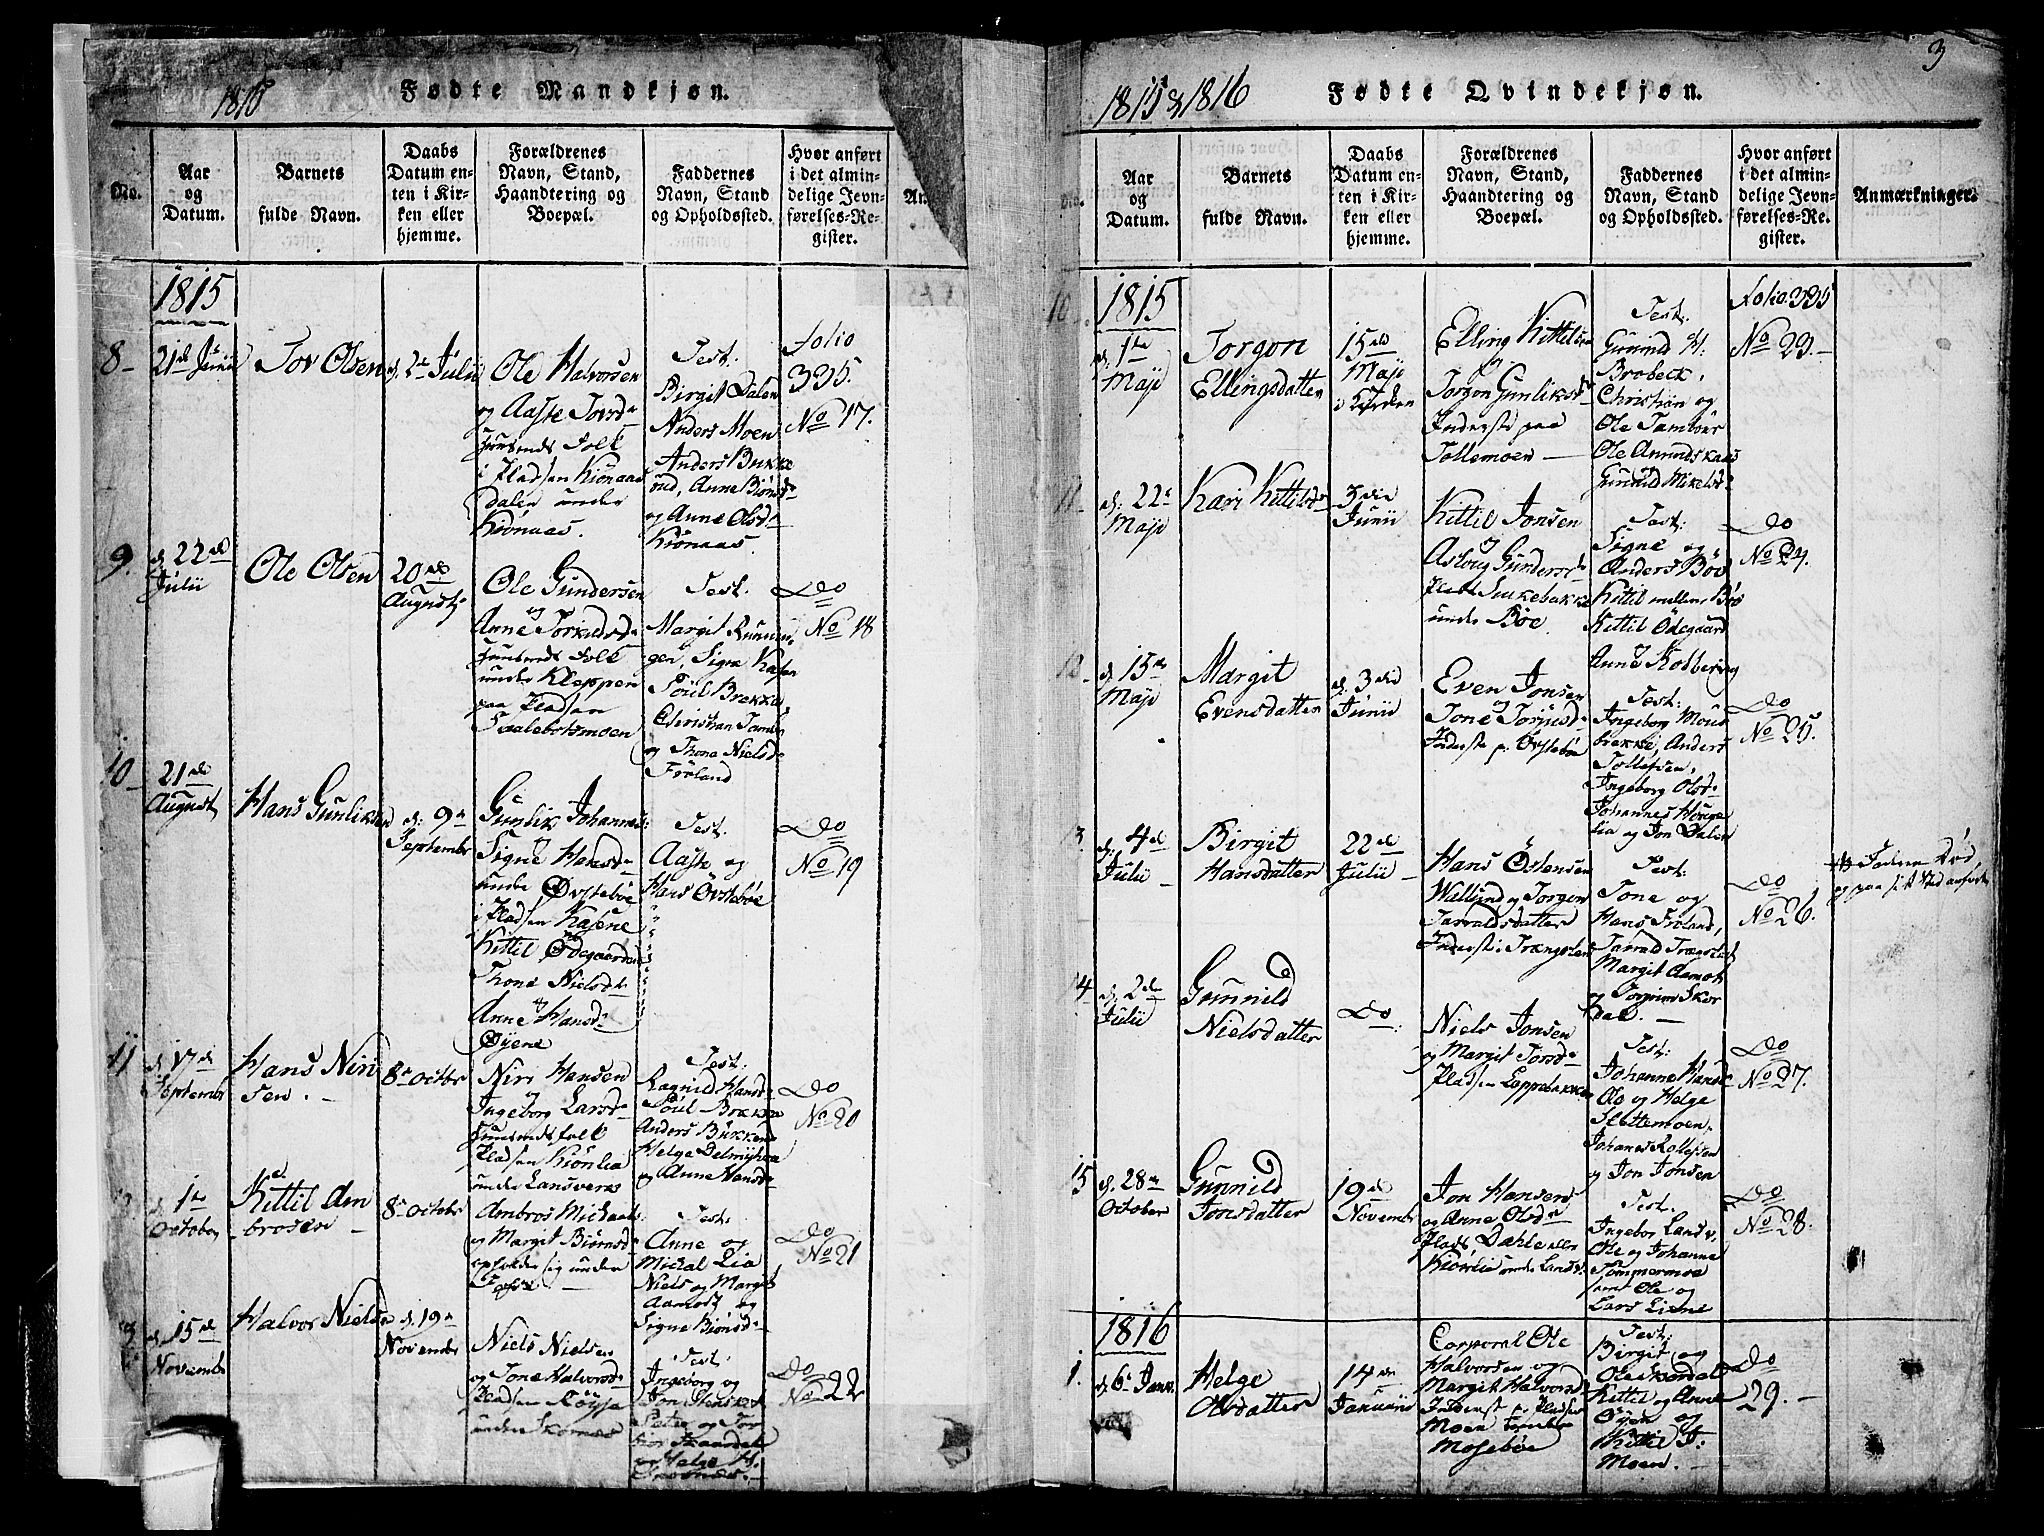 1815 Fødte Mandkjøn.
No.
Aar
og
Datum.
Barnets
fulde Navn.
Daabs
Datum en-
ten i Kir-
ken eller
hjemme.
Forældrenes
Navn, Stand,
Haandtering og
Boepæl.
Faddernes
Navn, Stand
og Opholdssted.
Hvor anført
i det almin-
delige Jevn-
førelses-Re-
gister.
An
1815
8
21de Junii
Tov Olsen
d. 2de Julii
Ole Halvorsen
og Aaste Tovsd.
Huusmands Folk
i Pladsen Kiønaas
dalen under
Kiønaas.
Test:
Birgit Dalen
Anders Moen
Anders Bukke
Anne Biønsd.
og Anne Olsd.
Kiønaas.
folio
335.
No 17.
9.
d. 22de
Julii
Ole Olsen
20de
Augusti
Ole Gundersen
og
Anne Torkildsd.
Huusmands Folk
under Kleppen
paa Pladsen
Test.
Margit
Signe Kasen
Poul Brekke
Christian
og Thone Nielsd.
Frøland
Do
No 18
10
21de
Augusti
Hans Gunliksen
d. 9de
Septembr
Gunlik Johannes:
Signe Hansd.
under Øvstebøe
i Pladsen Kasene
Kittil Ødegaarden
Thone Nielsd.
og
Anne Hansd.
Øyene
Test.
Aaste og
Hans Øvstebøe
Do
No 19
11
d. 17de
Septembr
Hans Niri
sen.
8de Octobr
Niri Hansen
og
Ingeborg Larsd.
Huusmandsfolk
Pladsen Kiønlia
under Lansverk
Test:
Ragnild Hansd.
Poul Brekke
Anders Bukken
Helge
og Anne Hansd.
Do
No 20
d. 1te
October
Kittil Am
brosen
8de Octobr
Ambros Michaels:
og Margit Biørnsd.
opholder sig under
Test:
Anne og
Michal Lia
Niels og Margit
Aamodt og
Signe Biønsd.
Do
No 21
d. 15de
Novembr
Halvor Niels
d. 19de
Novembr
Niels Nielsen
og Tone Halvorsd.
Pladsen Røysa
under
Test:
Ingeborg og
Jon
Do
No 22
3
1815 & 1816 Fødte Qvindekjøn.
No.
Aar
og
Datum.
Barnets
fulde Navn.
Daabs
Datum en-
ten i Kir-
ken eller
hjemme.
Forældrenes
Navn, Stand,
Haandtering og
Boepæl.
Faddernes
Navn, Stand
og Opholdssted.
Hvor anført
i det almin-
delige Jevn-
førelses-Re-
gister.
Anmærkninger.
10
1815
d. 1te
Maji
Torgon
Ellingsdatter
15de
Maji
i Kirken
Elling Kittilsen
og
Torgon Gunliksd.
Inderste paa
Tollemoen
Test:
Gunild H:
Brobeck,
Christian og
Ole Tambur
Ole
Gunild Mikelsd.
folio 335
No 23.
11
d: 22de
Maji
Kari Kittilsd.
3die
Junii
Kittil Jonsen
og
Asloug Gundersd.
under Bøe.
Test:
Signe og
Anders Bøe
Kittil mellem Bøe
Kittil Ødegaard
Anne Kodberg
Do
No 24.
12
d. 15de
Maji
Margit
Evensdatter
d. 3die
Junii
Even Jonsen
og
Tone Torjusd.
Inderste p: Øvstebøe
Test:
Ingeborg
brekke, Anders
Tollefsen,
Ingeborg Olsd.
Johannes Houge
lia og Jon Dalen
Do
No 25.
13
d: 4de
Julii
Birgit
Hansdatter
22de
Julii
Hans Østensen
og Torgon
Tarraldsdatter
Inderst i
Test:
Tone og
Hans Froland,
Tarrald
Margit Aamodt
og Torgrim Skor
dal.
Do
No 26.
14
d. 2den
Julii
Gunnild
Nielsdatter
Do
Niels Jonsen
og Margit Torsd.
Pladsen Loppebakken
Test:
Johanne Hansd.
Ole og Helge
Slettemoen,
og Jon Jonsen
Do
No 27.
15
d. 28de
October
Gunnild
Jonsdatter
19de
Novembr
Jon Hansen
og Anne Olsd.
Plads Dahle eller
Kiønlia under Landsv.
Test.
Ingebor Landsv.
Ole og Johanne
Tømmermoe
samt Ole og
Lars
Do
No 28.
1816
1.
d. 6te Janv.
Helge
Olsdatter
14de
Januarii
Corporal Ole
Halvorsen og
Margit Halvorsd.
Inderst p: Pladsen
Moen under
Mosebøe
Test:
Birgit og
Ole Skordal
Kittil og Anne
Øyen og
Kittil J.
Moen.
Do
29.